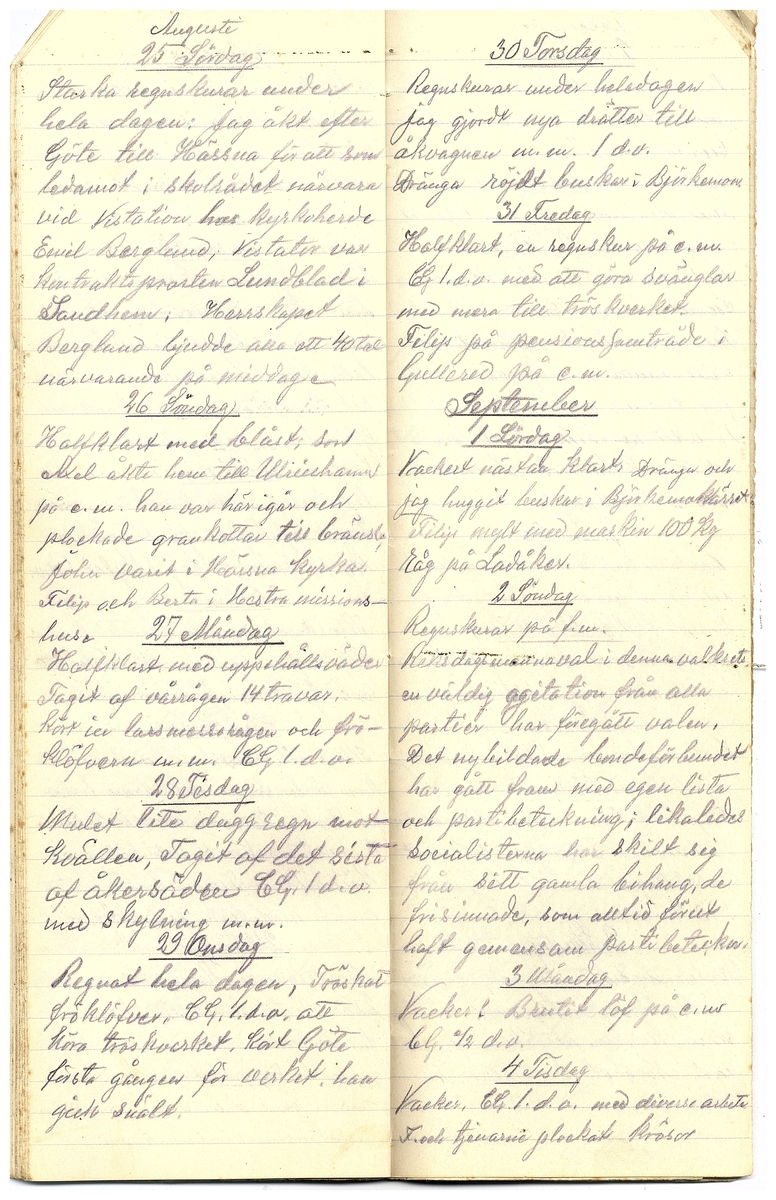 Augusti
25 Lördag
Starka regnskurar under
hela dagen; Jag åkt efter
Göte till Hässna för att som
ledamot i skolrådet närvara
vid Vistation hos kyrkoherde
Emil Berglund, Vistator var
kontraktsprosten Lundblad i
Sandhem; Herrskapet
Berglund bjudde oss ett 40 tal
närvarande på middag
26 Söndag
Halfklart med blåst, son
Axel åkte hem till Ulricehamn
på e.m. han var här igår och
plockade grankottar till bränsle,
John varit i Hässna kyrka
Filip och Berta i Hestra missions-
hus.
27 Måndag
Halfklart med uppehållsväder
Tagit af vårrågen 14 travar.
kört in larsmessorågen och frö-
klöfvern m.m. CG 1.d.v.
28 Tisdag
Mulet lite duggregn mot
kvällen, Tagit af det sista
af åkersäden CG. 1 d.v.
med skylning m.m.
29 Onsdag
Regnat hela dagen, Tröskat
fröklöfver. CG. 1.d.v. att
köra tröskverket. kört Göte
första gången för verket, han
gick snält.
30 Torsdag
Regnskurar under heladagen
jag gjordt nya drätter till
åkvagnen m.m. 1 d.v.
Dränga röjdt buskar i Björkemom
31 Fredag
Halfklart, en regnskur på e.m.
CG 1.d.v. med att göra svänglar
med mera till tröskverket.
Filip på pensionssamträde i
Gullered på e.m.
September
1 Lördag
Vackert nästan klart. Drängen och
jag huggit buskar i Björkemokärret
Filip mylt med maskin 100 Kg
råg på Ladåker.
2 Söndag
Regnskurar på f.m.
Riksdagsmannaval i denna valkrets,
en väldig agitation från alla
partier har föregått valen.
Det nybildade bondeförbundet
har gått fram med egen lista
och partibeteckning; likaledes
socialisterna har skilt sig
från sitt gamla bihang, de
frisinnade, som alltid förut
haft gemensam partibeteckn.
3 Måndag
Vacker! Brutit löf på e.m
CG. ½ d.v.
4 Tisdag
Vacker. CG. 1.d.v. med diverse arbete
F. och tjenarne plockat krösor